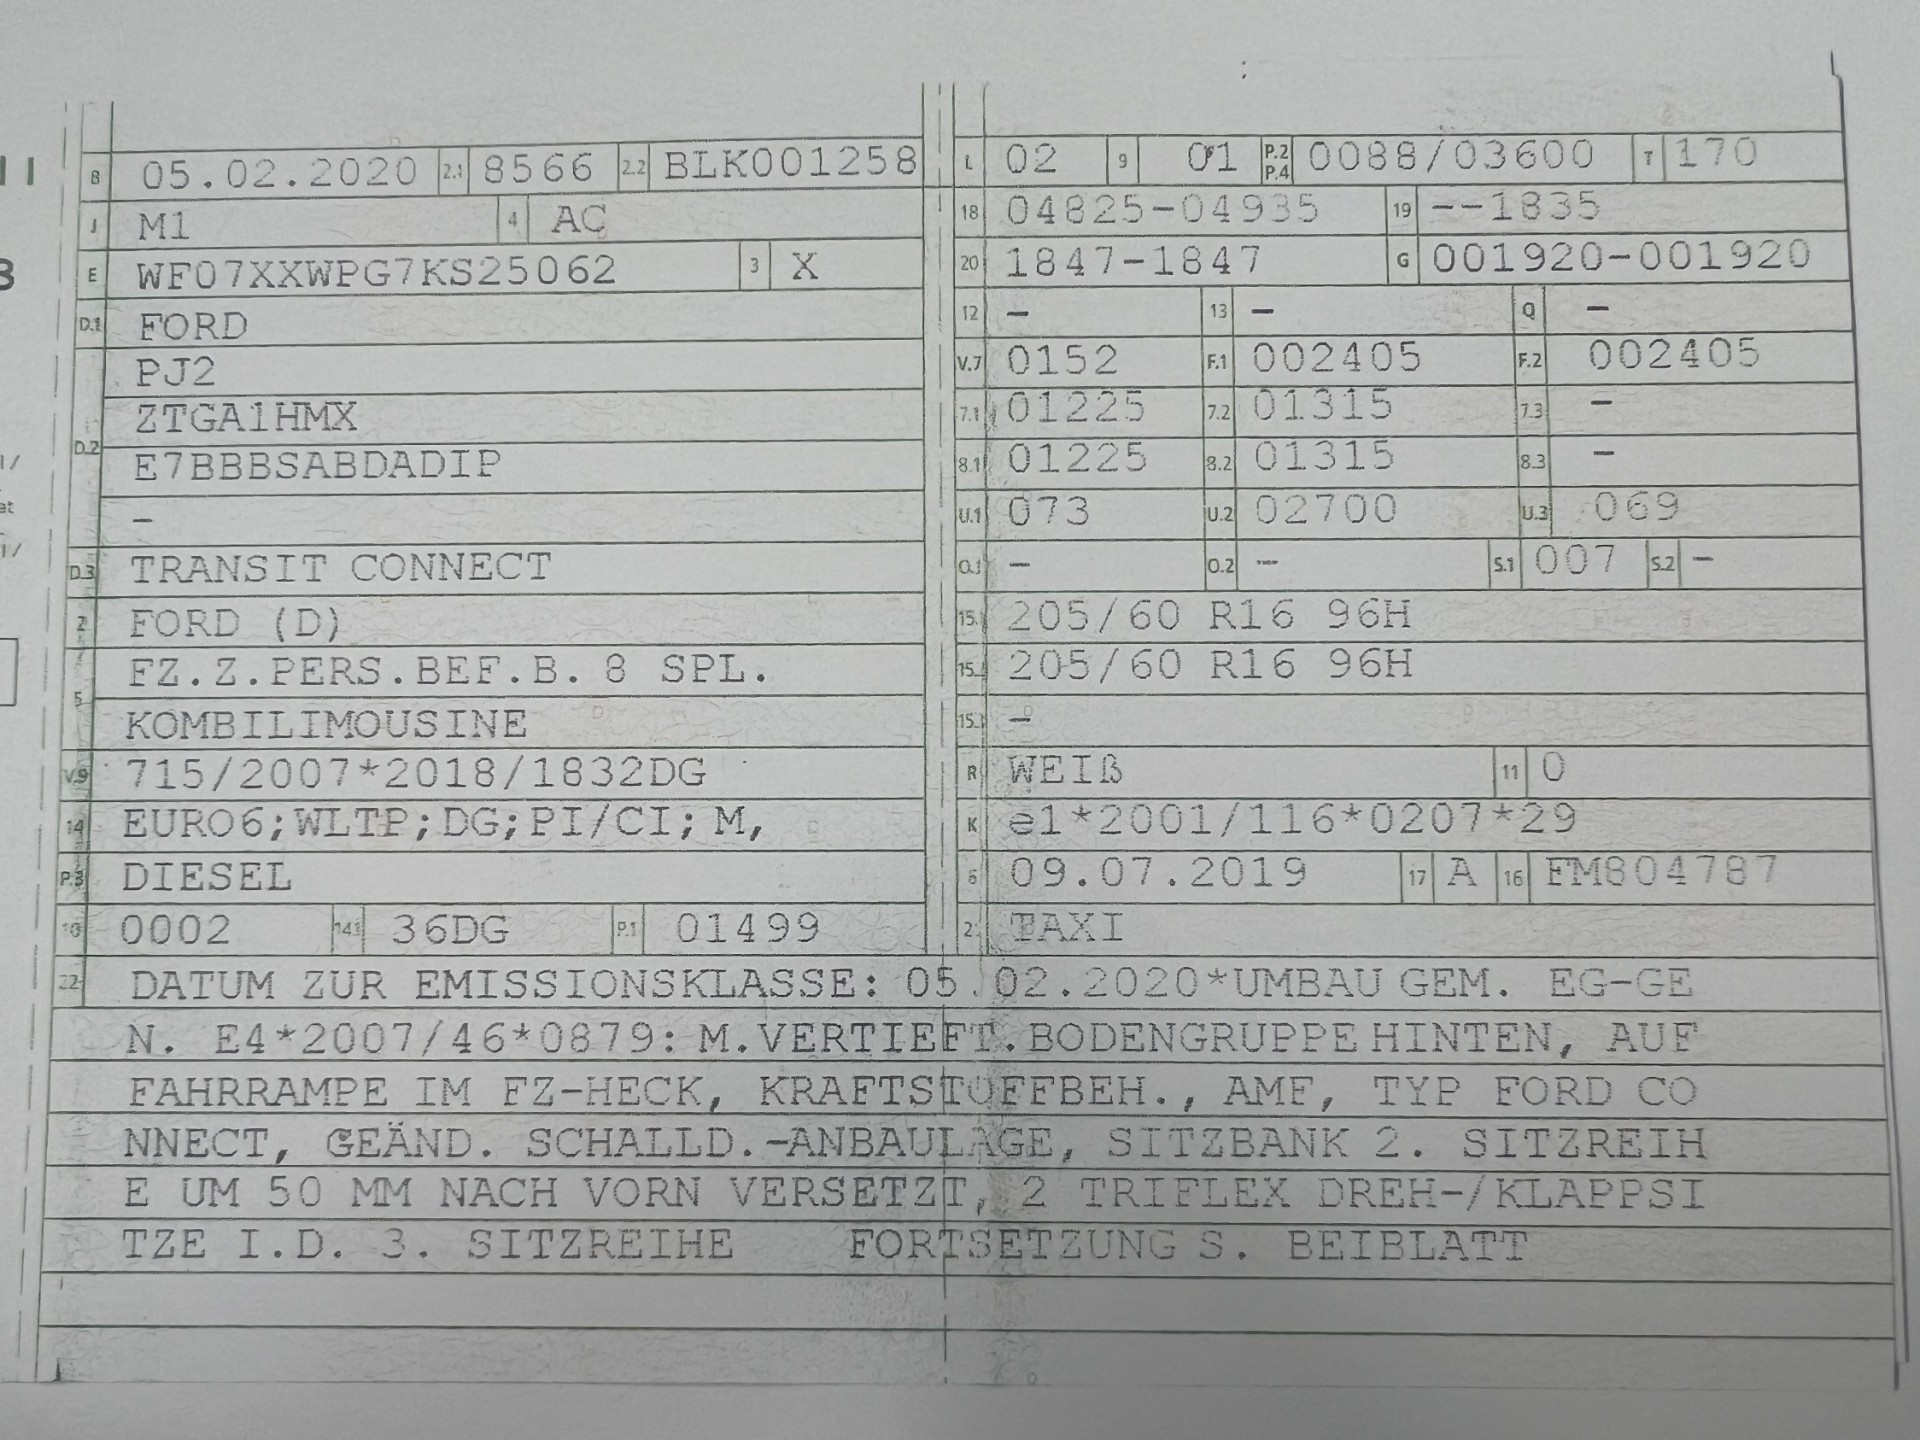 B 05.02.2020 2.1 8566 2.2 BLK001258
J M1 4 AC
E WF07XXWPG7KS25062 3 X
D.1 FORD
PJ2
ZTGA1HMX
D.2
E7BBBSABDADIP
–
D.3 TRANSIT CONNECT
2 FORD (D)
FZ.Z.PERS.BEF.B. 8 SPL.
5
KOMBILIMOUSINE
V.9 715/2007*2018/1832DG
14 EURO6;WLTP;DG;PI/CI; M,
P.3 DIESEL
10 0002 14.1 36DG P.1 01499
L 02 9 01 P.2 P.4 0088/03600 T 170
18 04825-04935 19 --1835
20 1847-1847 G 001920-001920
12 – 13 – Q –
V.7 0152 F.1 002405 F.2 002405
7.1 01225 7.2 01315 7.3 –
8.1 01225 8.2 01315 8.3 –
U.1 073 U.2 02700 U.3 069
O.1 – O.2 -- S.1 007 S.2 –
15. 205/60 R16 96H
15. 205/60 R16 96H
15. –
R WEIß 11 0
K e1*2001/116*0207*29
6 09.07.2019 17 A 16 FM804787
2 TAXI
22 DATUM ZUR EMISSIONSKLASSE: 05.02.2020*UMBAU GEM. EG-GE
N. E4*2007/46*0879: M.VERTIEFT.BODENGRUPPE HINTEN, AUF
FAHRRAMPE IM FZ-HECK, KRAFTSTOFFBEH., AMF, TYP FORD CO
NNECT, GEÄND. SCHALLD.-ANBAULAGE, SITZBANK 2. SITZREIH
E UM 50 MM NACH VORN VERSETZT, 2 TRIFLEX DREH-/KLAPPSI
TZE I.D. 3. SITZREIHE FORTSETZUNG S. BEIBLATT